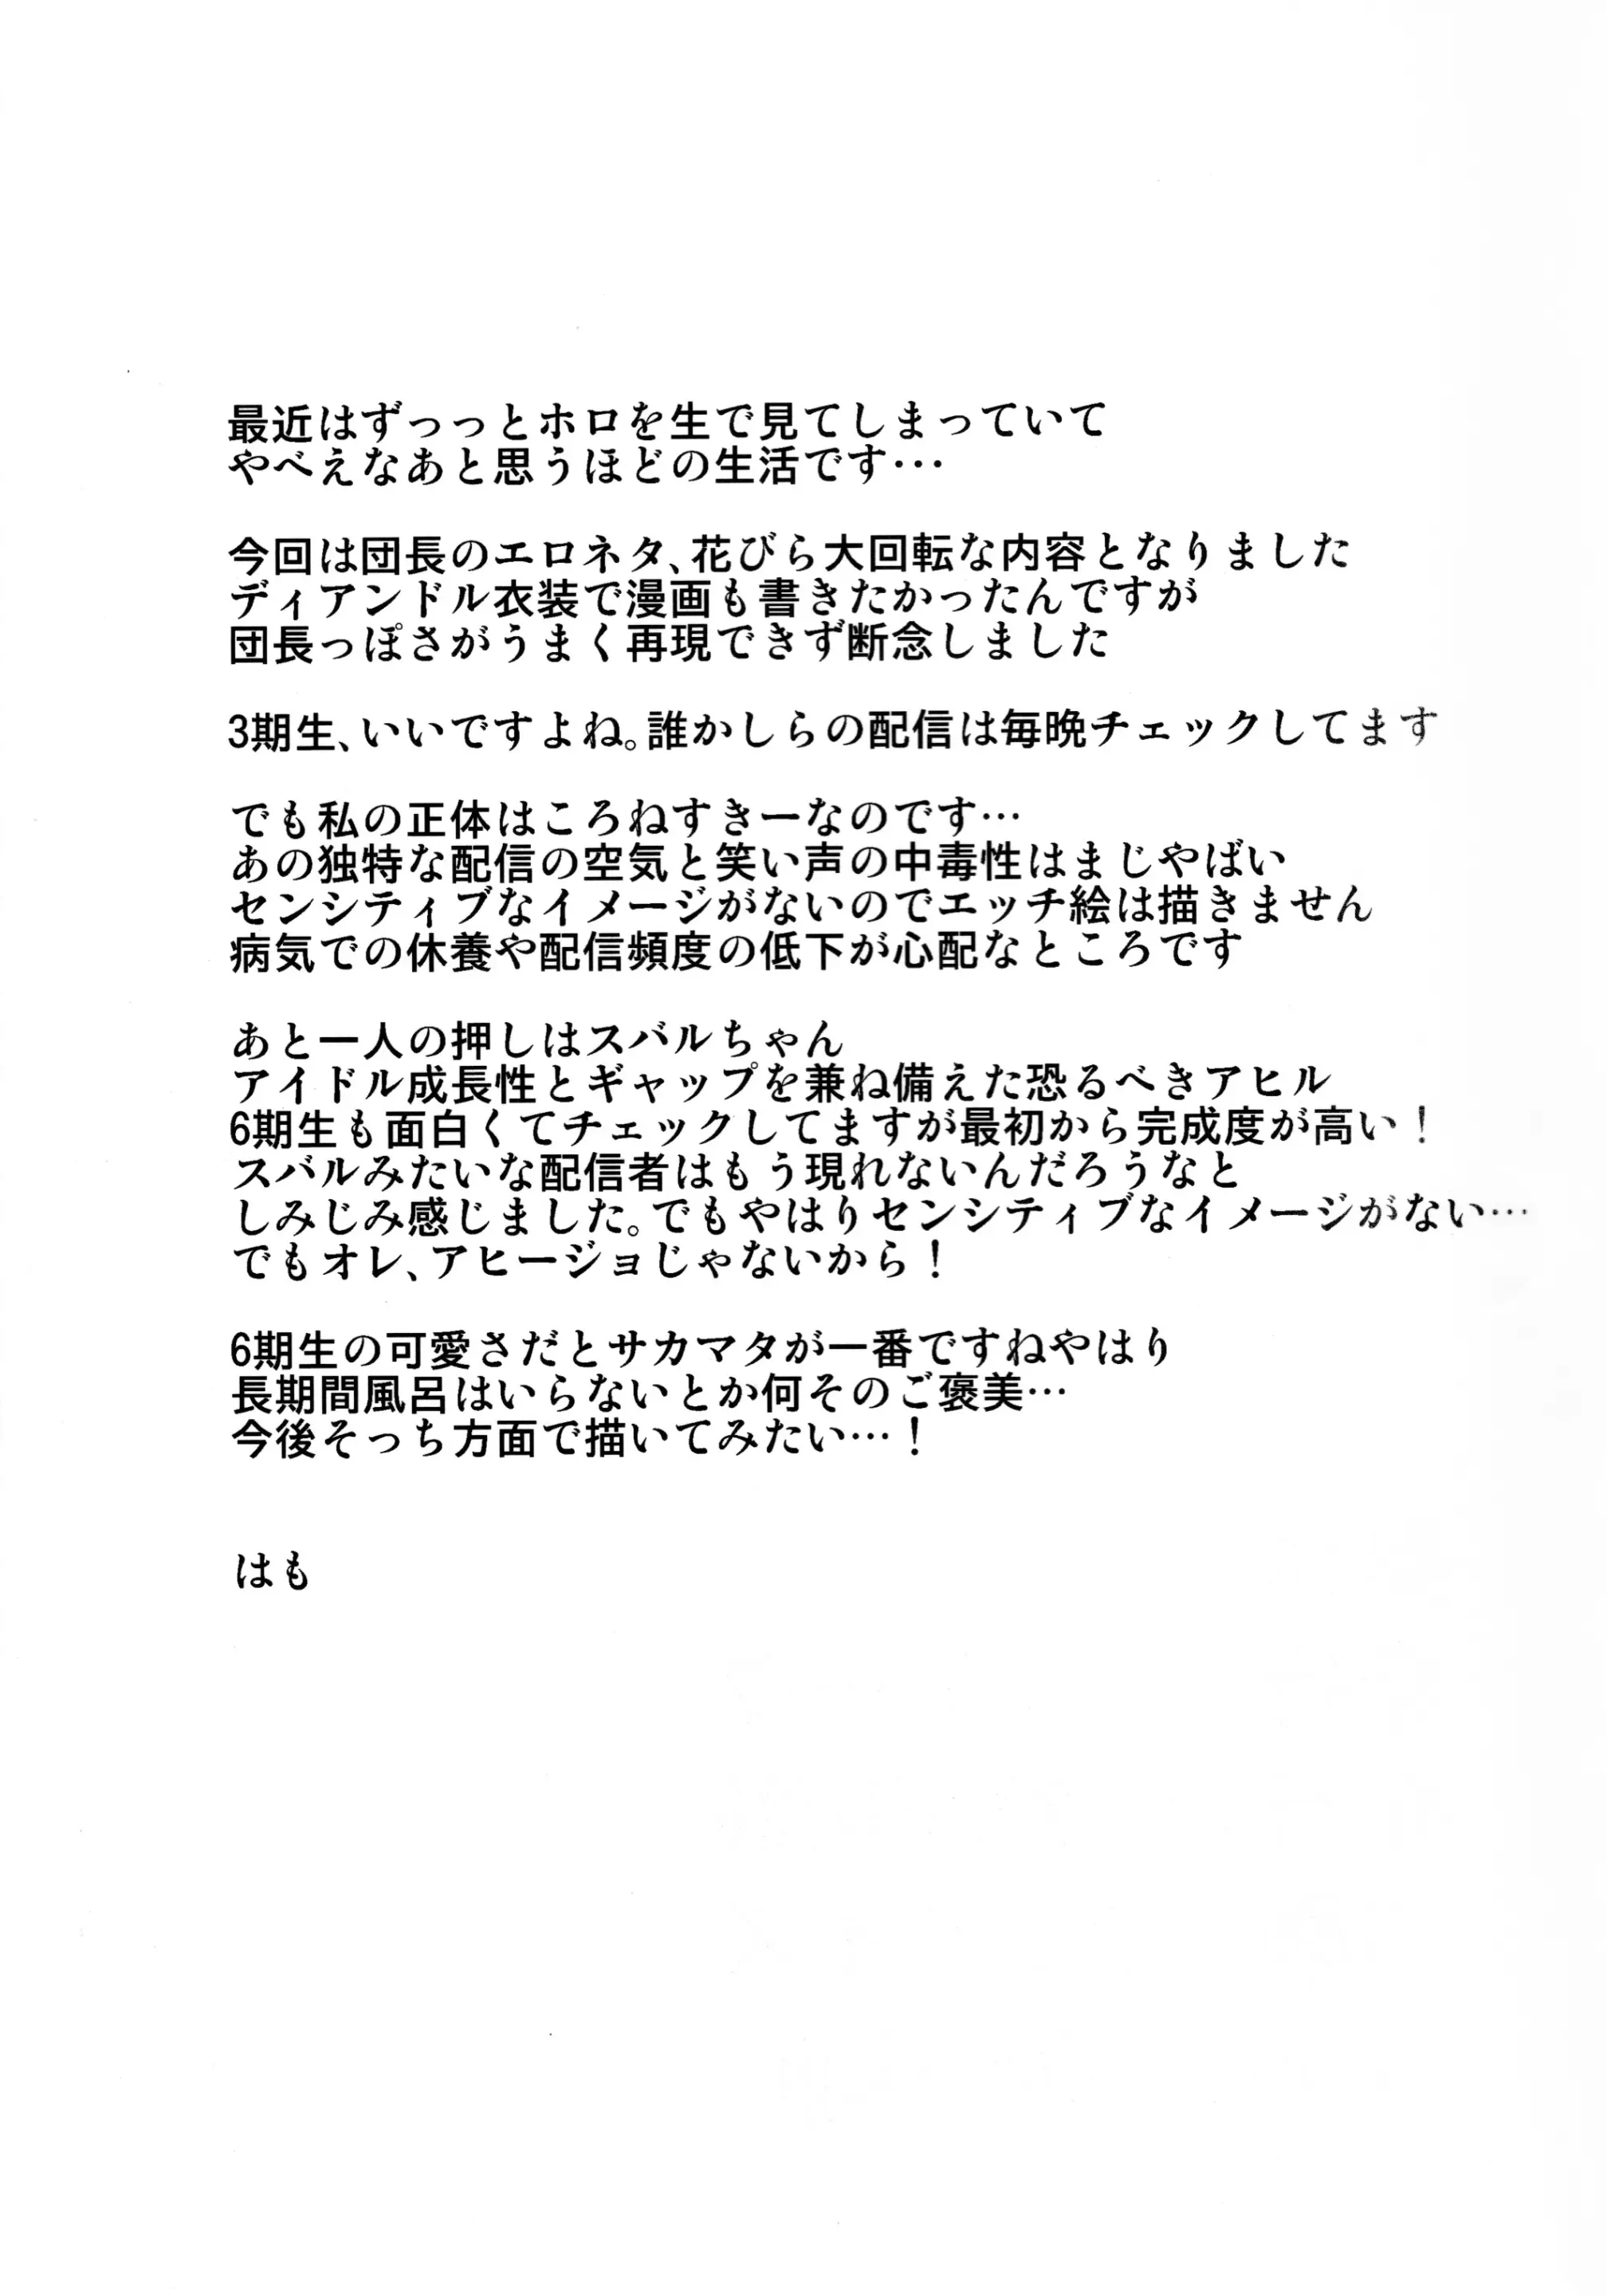 最近はずっっとホロを生で見てしまっていて
やべえなあと思うほどの生活です…
今回は団長のエロネタ、花びら大回転な内容となりました
ディアンドル衣装で漫画も書きたかったんですが
団長っぽさがうまく再現できず断念しました
3期生、いいですよね。誰かしらの配信は毎晩チェックしてます
でも私の正体はころねすきーなのです…
あの独特な配信の空気と笑い声の中毒性はまじやばい
センシティブなイメージがないのでエッチ絵は描きません
病気での休養や配信頻度の低下が心配なところです
あと一人の押しはスバルちゃん
アイドル成長性とギャップを兼ね備えた恐るべきアヒル
6期生も面白くてチェックしてますが最初から完成度が高い！
スバルみたいな配信者はもう現れないんだろうなと
しみじみ感じました。でもやはりセンシティブなイメージがない…
でもオレ、アヒージョじゃないから！
6期生の可愛さだとサカマタが一番ですねやはり
長期間風呂はいらないとか何そのご褒美…
今後そっち方面で描いてみたい…！
はも